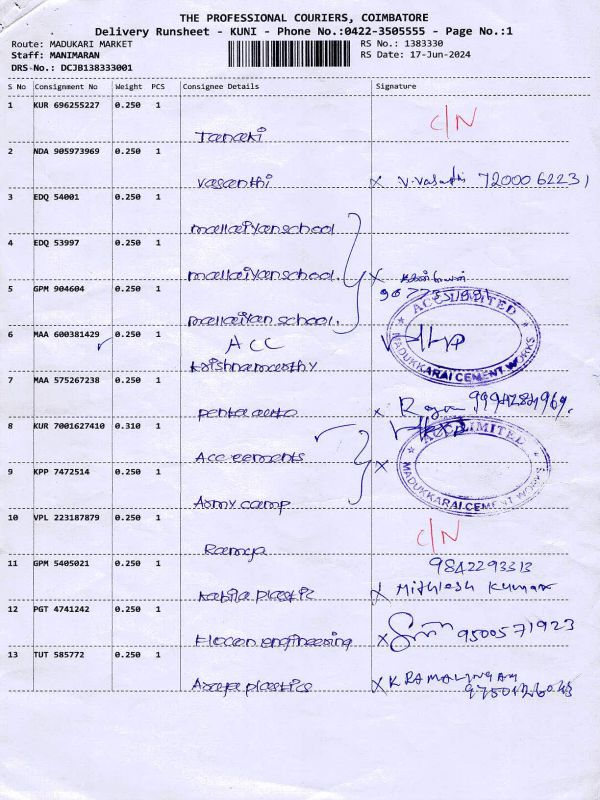 THE PROFESSIONAL COURIERS, COIMBATORE
Delivery Runsheet - KUNI - Phone No.:0422-3505555 - Page No.:1
Route: MADUKARI MARKET
RS No.: 1383330
Staff: MANIMARAN
RS Date: 17-Jun-2024
DRS No.: DCJB138333001
S No Consignment No Weight PCS Consignee Details Signature
1 KUR 696255227 0.250 1
C/N
Janaki
2 NDA 905973969 0.250 1
vasanthi x V.Vasanthi 7200062231
3 EDQ 54001 0.250 1
mallaiyan school
4 EDQ 53997 0.250 1
mallaiyan school. x
5 GPM 904604 0.250 1
mallaiyan school.
ACC LIMITED
MADUKKARAI CEMENT WORKS
6 MAA 600381429 0.250 1
ACC
krishnamoorthy
7 MAA 575267238 0.250 1
penta auto x
8 KUR 7001627410 0.310 1
Acc cements
ACC LIMITED
MADUKKARAI CEMENT WORKS
9 KPP 7472514 0.250 1
x
Army camp
10 VPL 223187879 0.250 1
C/N
Ramya
11 GPM 5405021 0.250 1
9842293313
kabila plastic x Mithlesh Kumar
12 PGT 4741242 0.250 1
Elecon engineering x 9500571923
13 TUT 585772 0.250 1
plastics x K RAMALINGAM